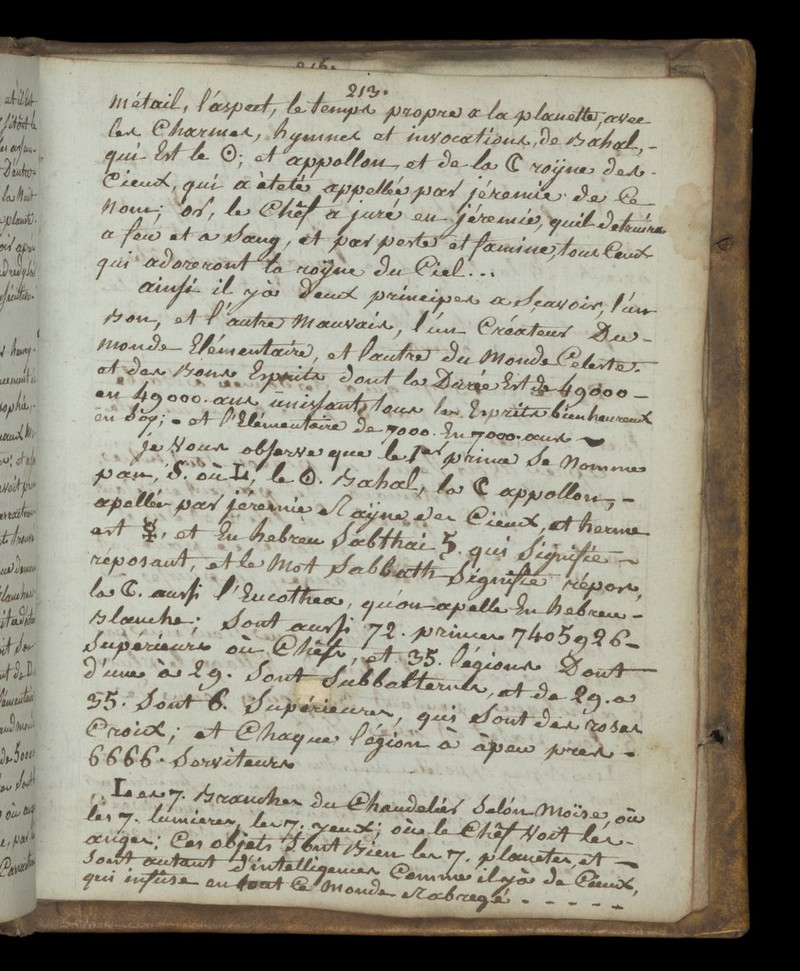 213.
métail, l'aspect, le temps propre a la planette, avec
les Charmes, hymnes et invocations, de Bahal, -
qui Est le ☉; et appollon et de la ☾ roÿne des -
Cieux, qui a ététe appellée par jéremie de Ce
Nom; or, le Chêf a juré en jéremie, quil detruira
a feu et a Sang, et par perte et famine, tous Ceux
qui adoreront la roÿne du Ciel...
ainsi il yà deux principes a Scavoir, l'un
Bon, et l'autre Mauvais, l'un Créateur Du -
monde Elémentaire, et l'autre du Monde Celeste.
et des Bons Esprits dont la Durée Est de 49000 -
en 49000. ans unissants tous les Esprits bienheureux
en Soy; - et l'Elémentaire de 7000. En 7000. ans ~
je Vous observe que le 1er prince Se Nomme
pan, S. où L, le ☉. Bahal, la ☾ appollon, -
apellée par jéremie Raÿne des Cieux, et herme
est ☿, et En hebreu Sabthai ♄. qui Signifie -
réposant, et le Mot Sabbath Signifie répos,
la ☾. aussi l'Eucothea, qu'on apelle En hebreu -
Blanche; Sont aussi 72. princes 7405926 -
Supérieurs où Chêfs, et 35. légions Dont
d'une à 29. Sont Subbalternes, et de 29. a
35. Sont 6. Supérieures, qui Sont des roses
Croix; et Chaque légion à àpeu pres -
6666. Serviteurs
Les 7. Branches du Chandeliér Selon Moïse, où
les 7. lumieres, les 7. yeux; où le Chêf Voit les -
anges; Ces objets Sont Bien les 7. planetes, et -
Sont autant d'intelligences Comme il yà de Cieux,
qui infuse en tout Ce Monde Rabregé - - - - -